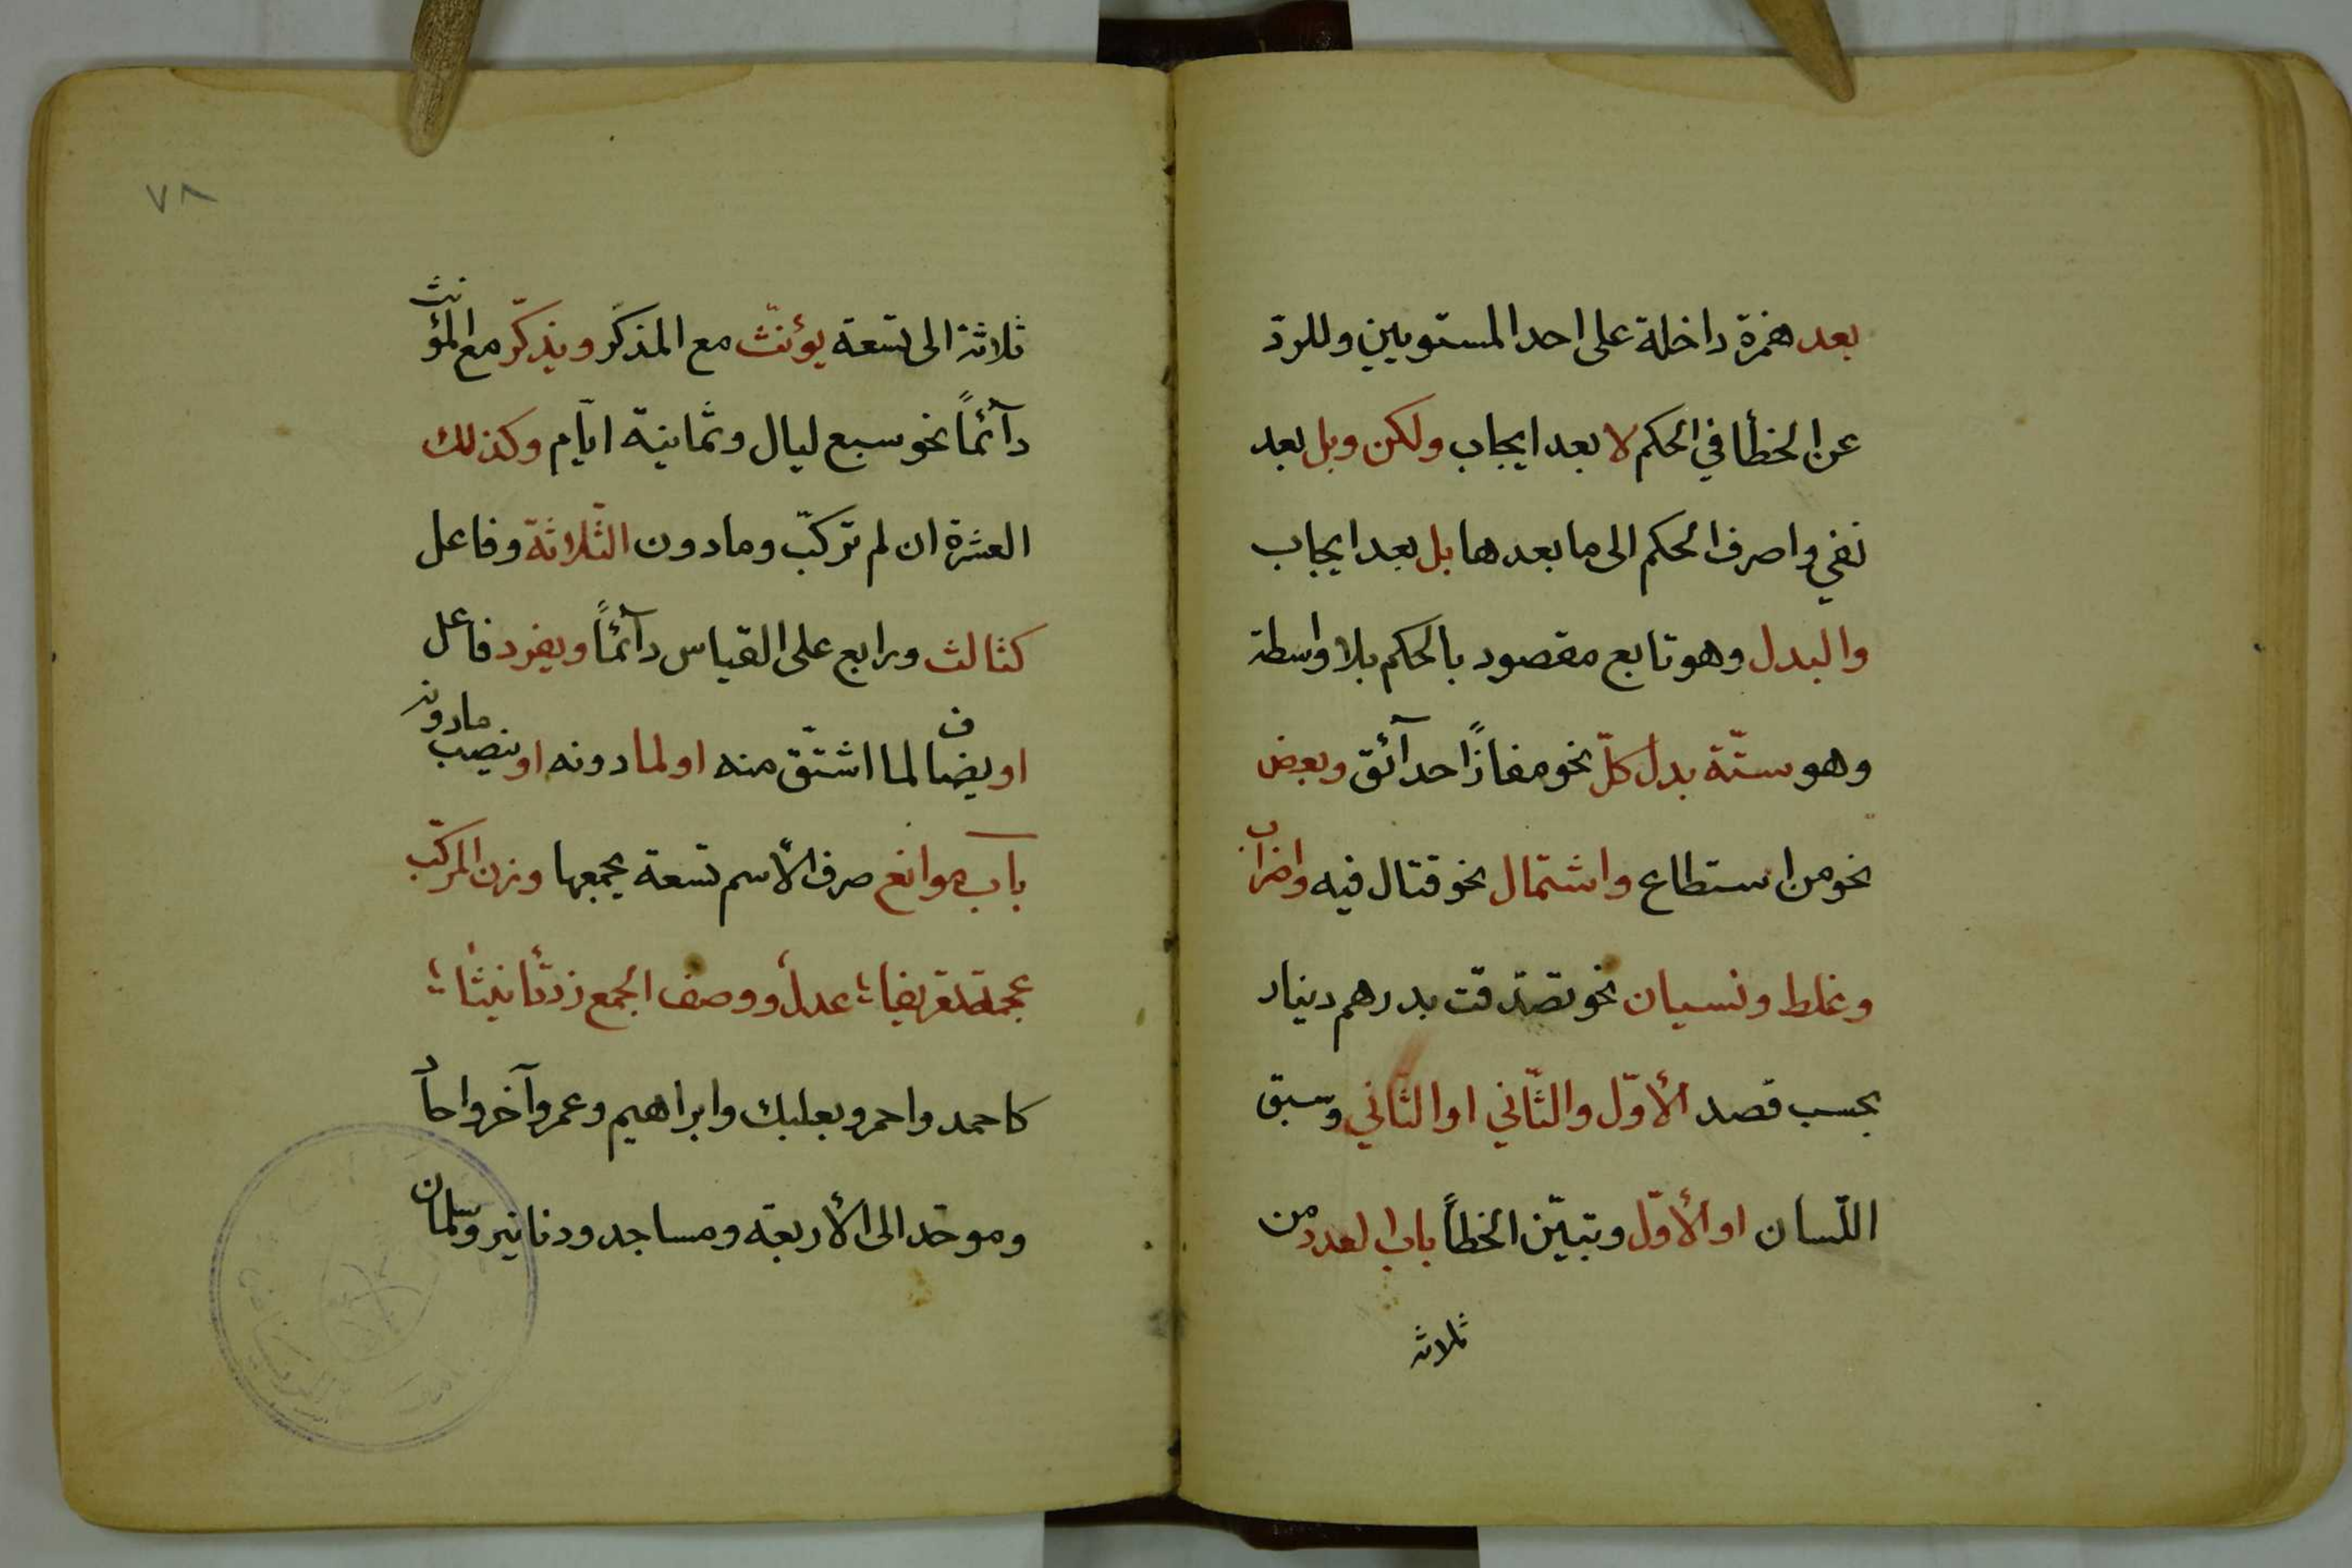 بعد همزة داخلة على احد المستويين وللردّ
عن الخطأ في الحكم لا بعد ايجاب ولكن وبل بعد
نفي واصرف الحكم الى ما بعدها بل بعد ايجاب
والبدل وهو تابع مقصود بالحكم بلا واسطة
وهو ستّة بدل كلّ نحو مفازًا حدآئق وبعض
نحو من استطاع واشتمال نحو قتال فيه واضراب
وغلط ونسيان نحو تصدّقت بدرهم دينار
بحسب قصد الأوّل والثّاني او الثّاني وسبق
اللّسان او الأوّل وتبيّن الخطأ باب العدد من
ثلاثة
٧٨
ثلاثة الى تسعة يؤنّث مع المذكّر ويذكّر مع المؤنث
دآئمًا نحو سبع ليال وثمانية ايّام وكذلك
العشرة ان لم تركّب وما دون الثّلاثة وفاعل
كثالث ورابع على القياس دآئمًا ويفرد فاعل
او يضاف لما اشتقّ منه او لما دونه او ينصب مادونه
باب موانع صرف الأسم تسعة يجمعها وزن المركّب
عجمة تعريفها عدل ووصف الجمع زد تأنيثا
كاحمد واحمر وبعلبك وابراهيم وعمر وآخر واحاد
وموحد الى الأربعة ومساجد ودنانير وسلمان